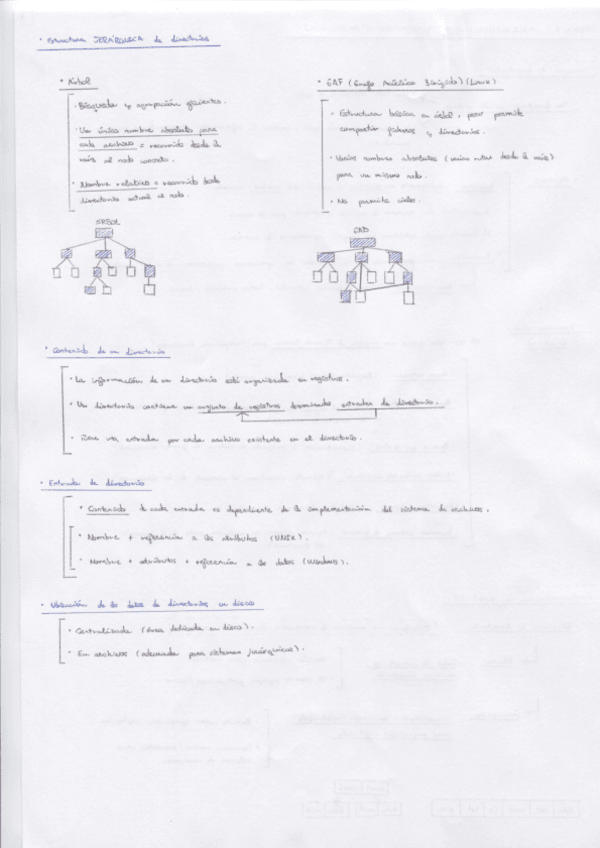 · Estructura JERÁRQUICA de directorios
· Árbol
· Búsqueda y agrupación eficientes.
· Un único nombre absoluto para
cada archivo = recorrido desde la
raíz al nodo concreto.
· Nombre relativo = recorrido desde
directorio actual al nodo.
ÁRBOL
· GAF (Grafo Acíclico Dirigido) (Linux)
· Estructura básica en árbol, pero permite
compartir ficheros y directorios.
· Varios nombres absolutos (varias rutas desde la raíz)
para un mismo nodo.
· No permite ciclos.
GAD
· Contenido de un directorio
· La información de un directorio está organizada en registros.
· Un directorio contiene un conjunto de registros denominados entradas de directorio.
· Tiene una entrada por cada archivo existente en el directorio.
· Entrada de directorio
· Contenido de cada entrada es dependiente de la implementación del sistema de archivos.
· Nombre + referencia a los atributos (UNIX).
· Nombre + atributos + referencia a los datos (Windows).
· Ubicación de los datos de directorios en disco
· Centralizada (área dedicada en disco).
· En archivos (adecuada para sistemas jerárquicos).